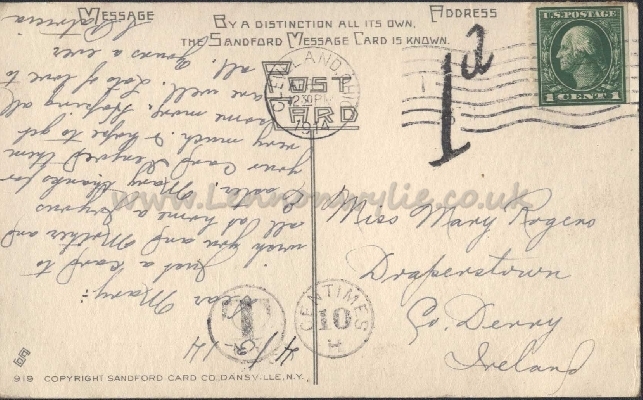 MESSAGE
BY A DISTINCTION ALL ITS OWN,
THE SANDFORD MESSAGE CARD IS KNOWN.
ADDRESS
POST CARD
CLEVELAND, OHIO
2 30 PM
1914
U.S. POSTAGE
1 CENT 1
1d
4/8-14
Dear Mary:
Just a card to
wish you and Mother and
all at home a joyous
Easter. Many thanks for
your card. Enjoyed them
very much. & hope to get
some more. Hoping all
are well. Lots of love to
all.
Yours as ever
Patricia
Miss Mary Rogers
Draperstown
Co. Derry
Ireland
T
CENTIMES
10
www.Lennonwylie.co.uk
919 COPYRIGHT SANDFORD CARD CO. DANSVILLE, N.Y.